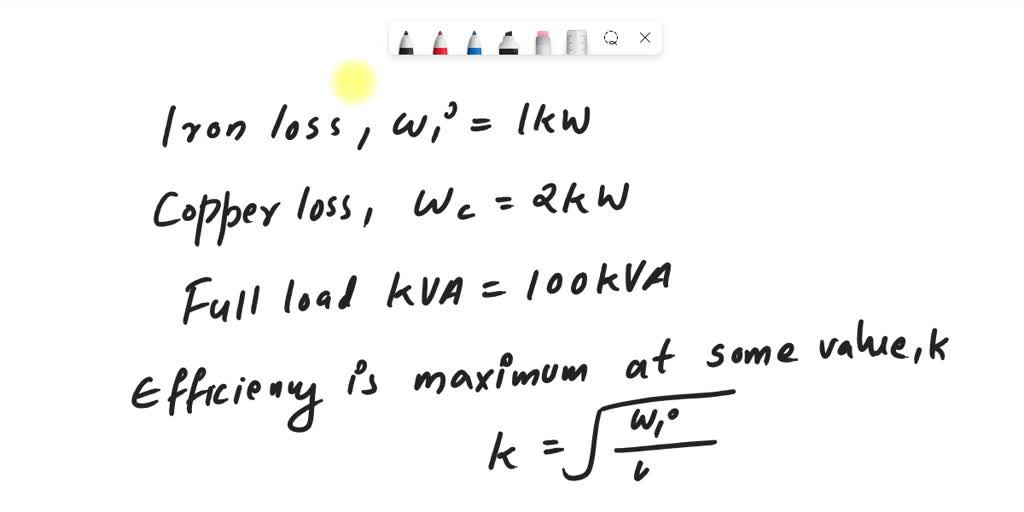 Iron loss, wi = 1kW
Copper loss, Wc = 2kW
Full load kVA = 100kVA
Efficieny is maximum at some value, k
k = √(wi/